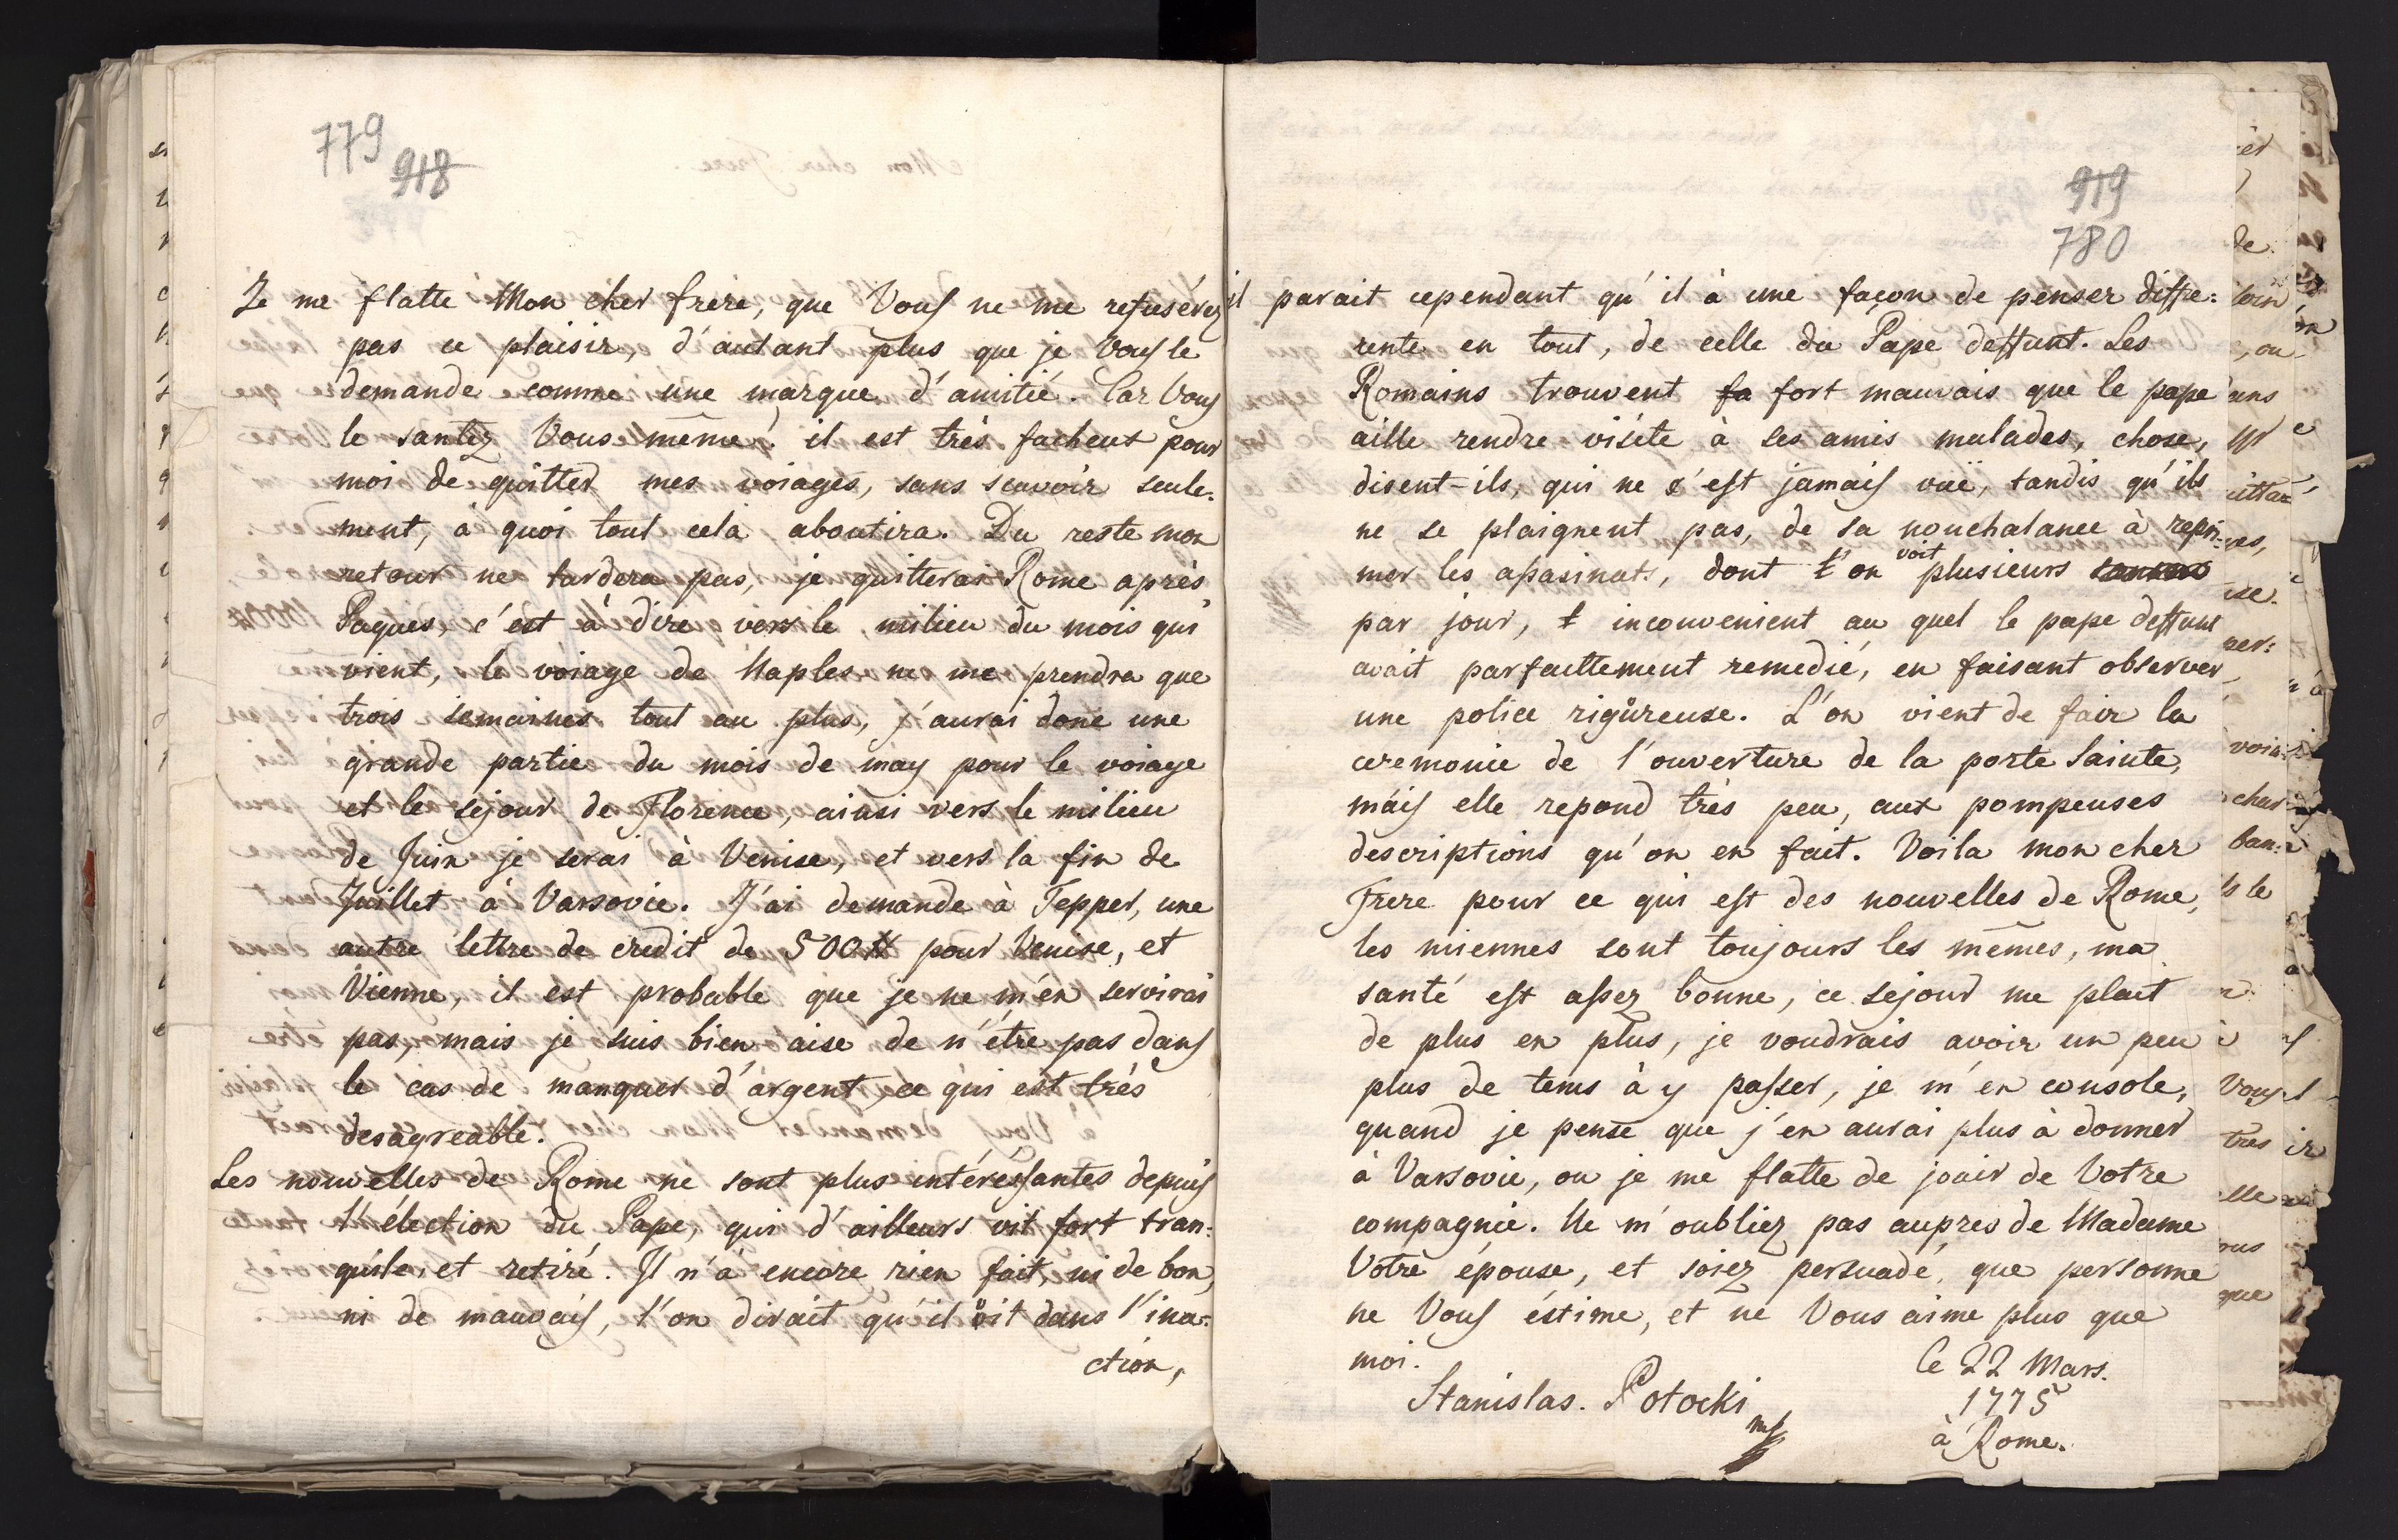 779
918
Je me flatte Mon cher frere, que Vous ne me refuserez
pas ce plaisir, d'autant plus que je Vous le
demande comme une marque d'amitié. Car Vous
le santez Vous même! il est très facheux pour
moi de quitter mes voiages, sans scavoir seule:
ment, à quoi tout cela aboutira. Du reste mon
retour ne tardera pas, je quitterai Rome après
Paques, c'est à dire vers le milieu du mois qui
vient, le voiage de Naples ne me prendra que
trois semaines tout au plus, j'aurai donc une
grande partie du mois de may pour le voiage
et le sejour de Florence, ainsi vers le milieu
de Juin je serai à Venise, et vers la fin de
Juillet à Varsovie. J'ai demande à Tepper, une
autre lettre de credit de 500# pour Venise, et
Vienne, il est probable que je ne m'en servirai
pas, mais je suis bien aise de n'être pas dans
le cas de manquer d'argent, ce qui est très
desagreable.
Les nouvelles de Rome ne sont plus intéréssantes depuis
l'élection du Pape, qui d'ailleurs vit fort tran:
quile et retiré. Il n'à encore rien fait, ni de bon,
ni de mauvais, l'on dirait qu'il vit dans l'ina:
ction,
919
780
il parait cependant qu'il à une façon de penser diffe:
rente en tout, de celle du Pape deffunt. Les
Romains trouvent fa fort mauvais que le pape
aille rendre visite à ses amis malades, chose,
disent-ils, qui ne s'est jamais vüe, tandis qu'ils
ne se plaignent pas, de sa nonchalance à repri:
mer les assasinats, dont l'on voit plusieurs
par jour, inconvenient au quel le pape deffunt
avait parfaittement remedié, en faisant observer
une police rigureuse. L'on vient de fair la
ceremonie de l'ouverture de la porte Sainte,
mais elle repond très peu, aux pompeuses
descriptions qu'on en fait. Voila mon cher
Frere pour ce qui est des nouvelles de Rome,
les miennes sont toujours les mêmes, ma
santé est assez bonne, ce sejour me plait
de plus en plus, je voudrais avoir un peu
plus de tems à y passer, je m'en console,
quand je pense que j'en aurai plus à donner
à Varsovie, ou je me flatte de jouir de Votre
compagnie. Ne m'oubliez pas aupres de Madame
Votre épouse, et soiez persuadé, que personne
ne Vous éstime, et ne Vous aime plus que
moi.
Stanislas. Potocki
le 22 Mars.
1775
à Rome.